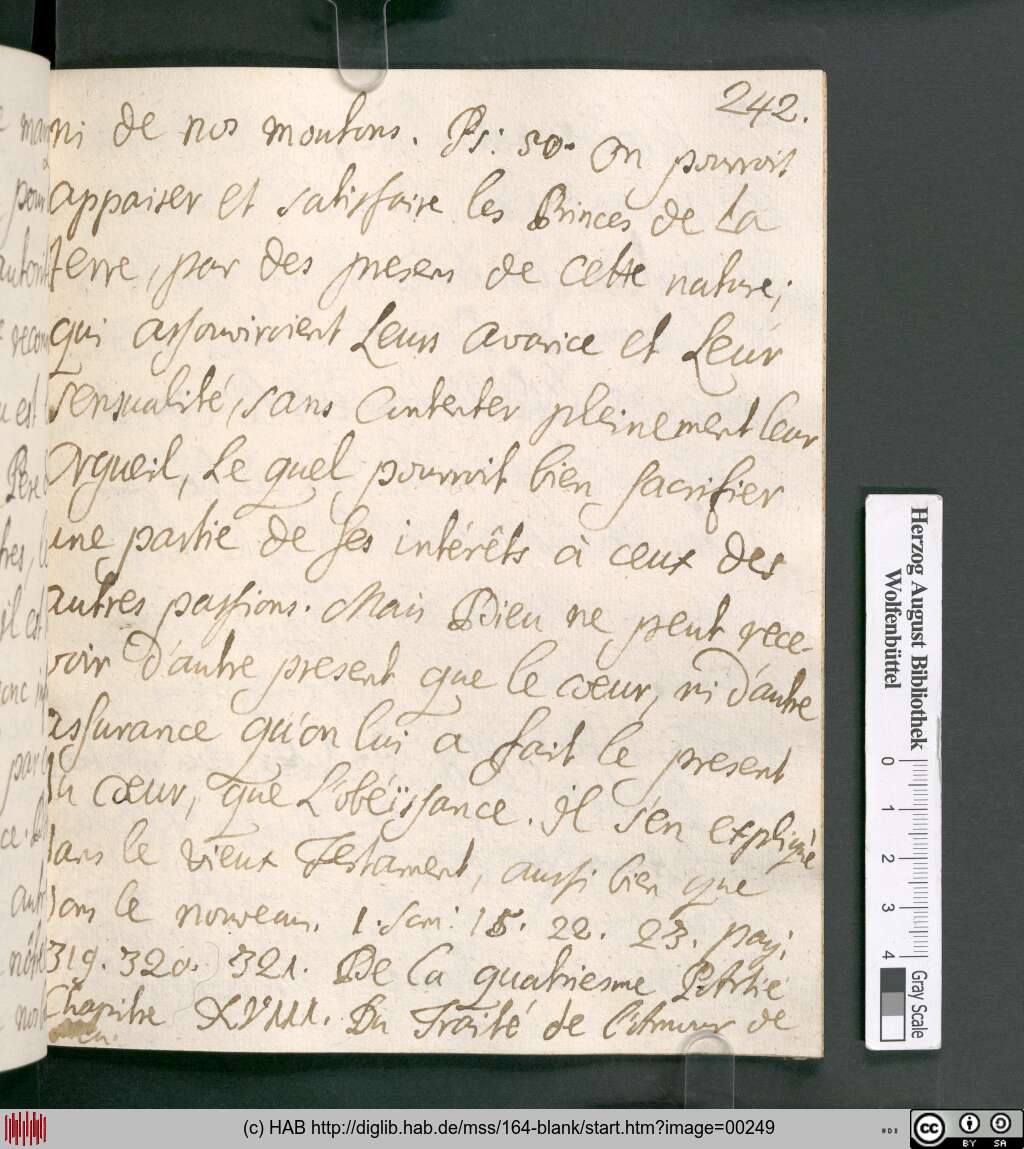 242.
ni de nos moutons. Ps: 50. On pourroit
appaiser et satisfaire les Princes de La
terre, par des presens de cette nature;
qui assouviroient Leurs avarice et Leur
sensualité, sans contenter pleinement leur
Orgueil, Le quel pourroit bien sacrifier
une partie de ses intérêts à ceux des
autres passions. Mais Dieu ne peut rece-
voir d'autre present que le cœur, ni d'autre
assurance qu'on lui a fait le present
du cœur, que L'obéïssance. Il s'en explique
dans le vieux Testament, aussi bien que
dans le nouveau. 1. Sam: 15. 22. 23. pag:
319. 320. 321. De La quatriesme Partie
Chapitre XVIII. Du Traité de l'Amour de
Dieu.
man
pour
autorit
recon
est
Père
tres,
il est
donc
par
ce.
autr
nôtre
Herzog August Bibliothek
Wolfenbüttel
0 1 2 3 4
Gray Scale
(c) HAB http://diglib.hab.de/mss/164-blank/start.htm?image=00249
cc BY SA